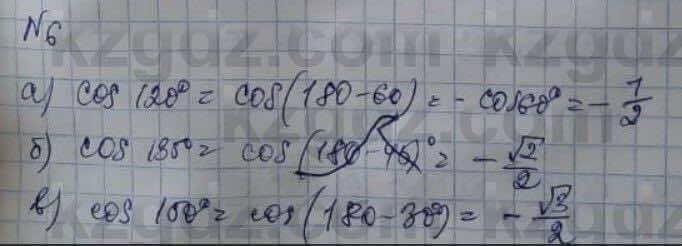 N6
а) cos 120° = cos(180-60) = - cos60° = - 1/2
б) cos 135° = cos (180-45)° = - √2/2
в) cos 150° = cos (180-30°) = - √3/2
kzgdz.com